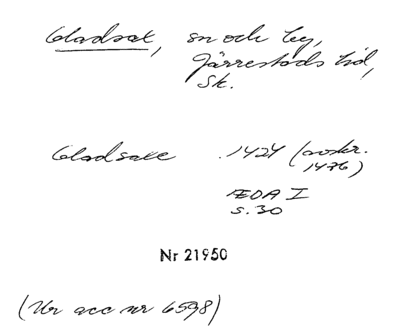 Gladsax, sn och by,
Järrestads hd,
Sk.
Gladsaxe 1424 (avskr.
1476)
ÆDA I
s. 30
Nr 21950
(Ur acc nr 6598)